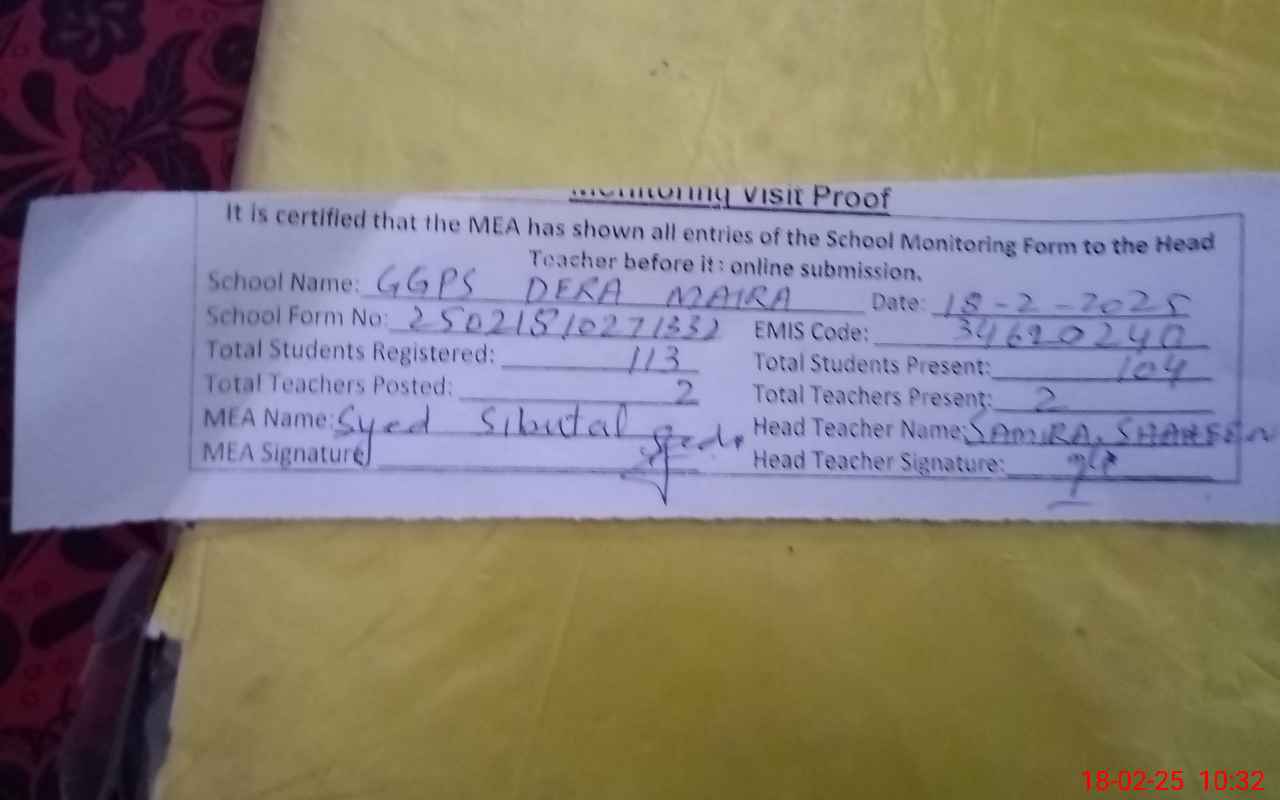 Monitoring Visit Proof
It is certified that the MEA has shown all entries of the School Monitoring Form to the Head
Teacher before its online submission.
School Name: GGPS DERA MAIRA Date: 18-2-2025
School Form No: EMIS Code: 34620240
Total Students Registered: 113 Total Students Present: 104
Total Teachers Posted: 2 Total Teachers Present: 2
MEA Name: Syed Sibutal Head Teacher Name: SAMIRA SHAHEEN
MEA Signature Head Teacher Signature:
18-02-25 10:32